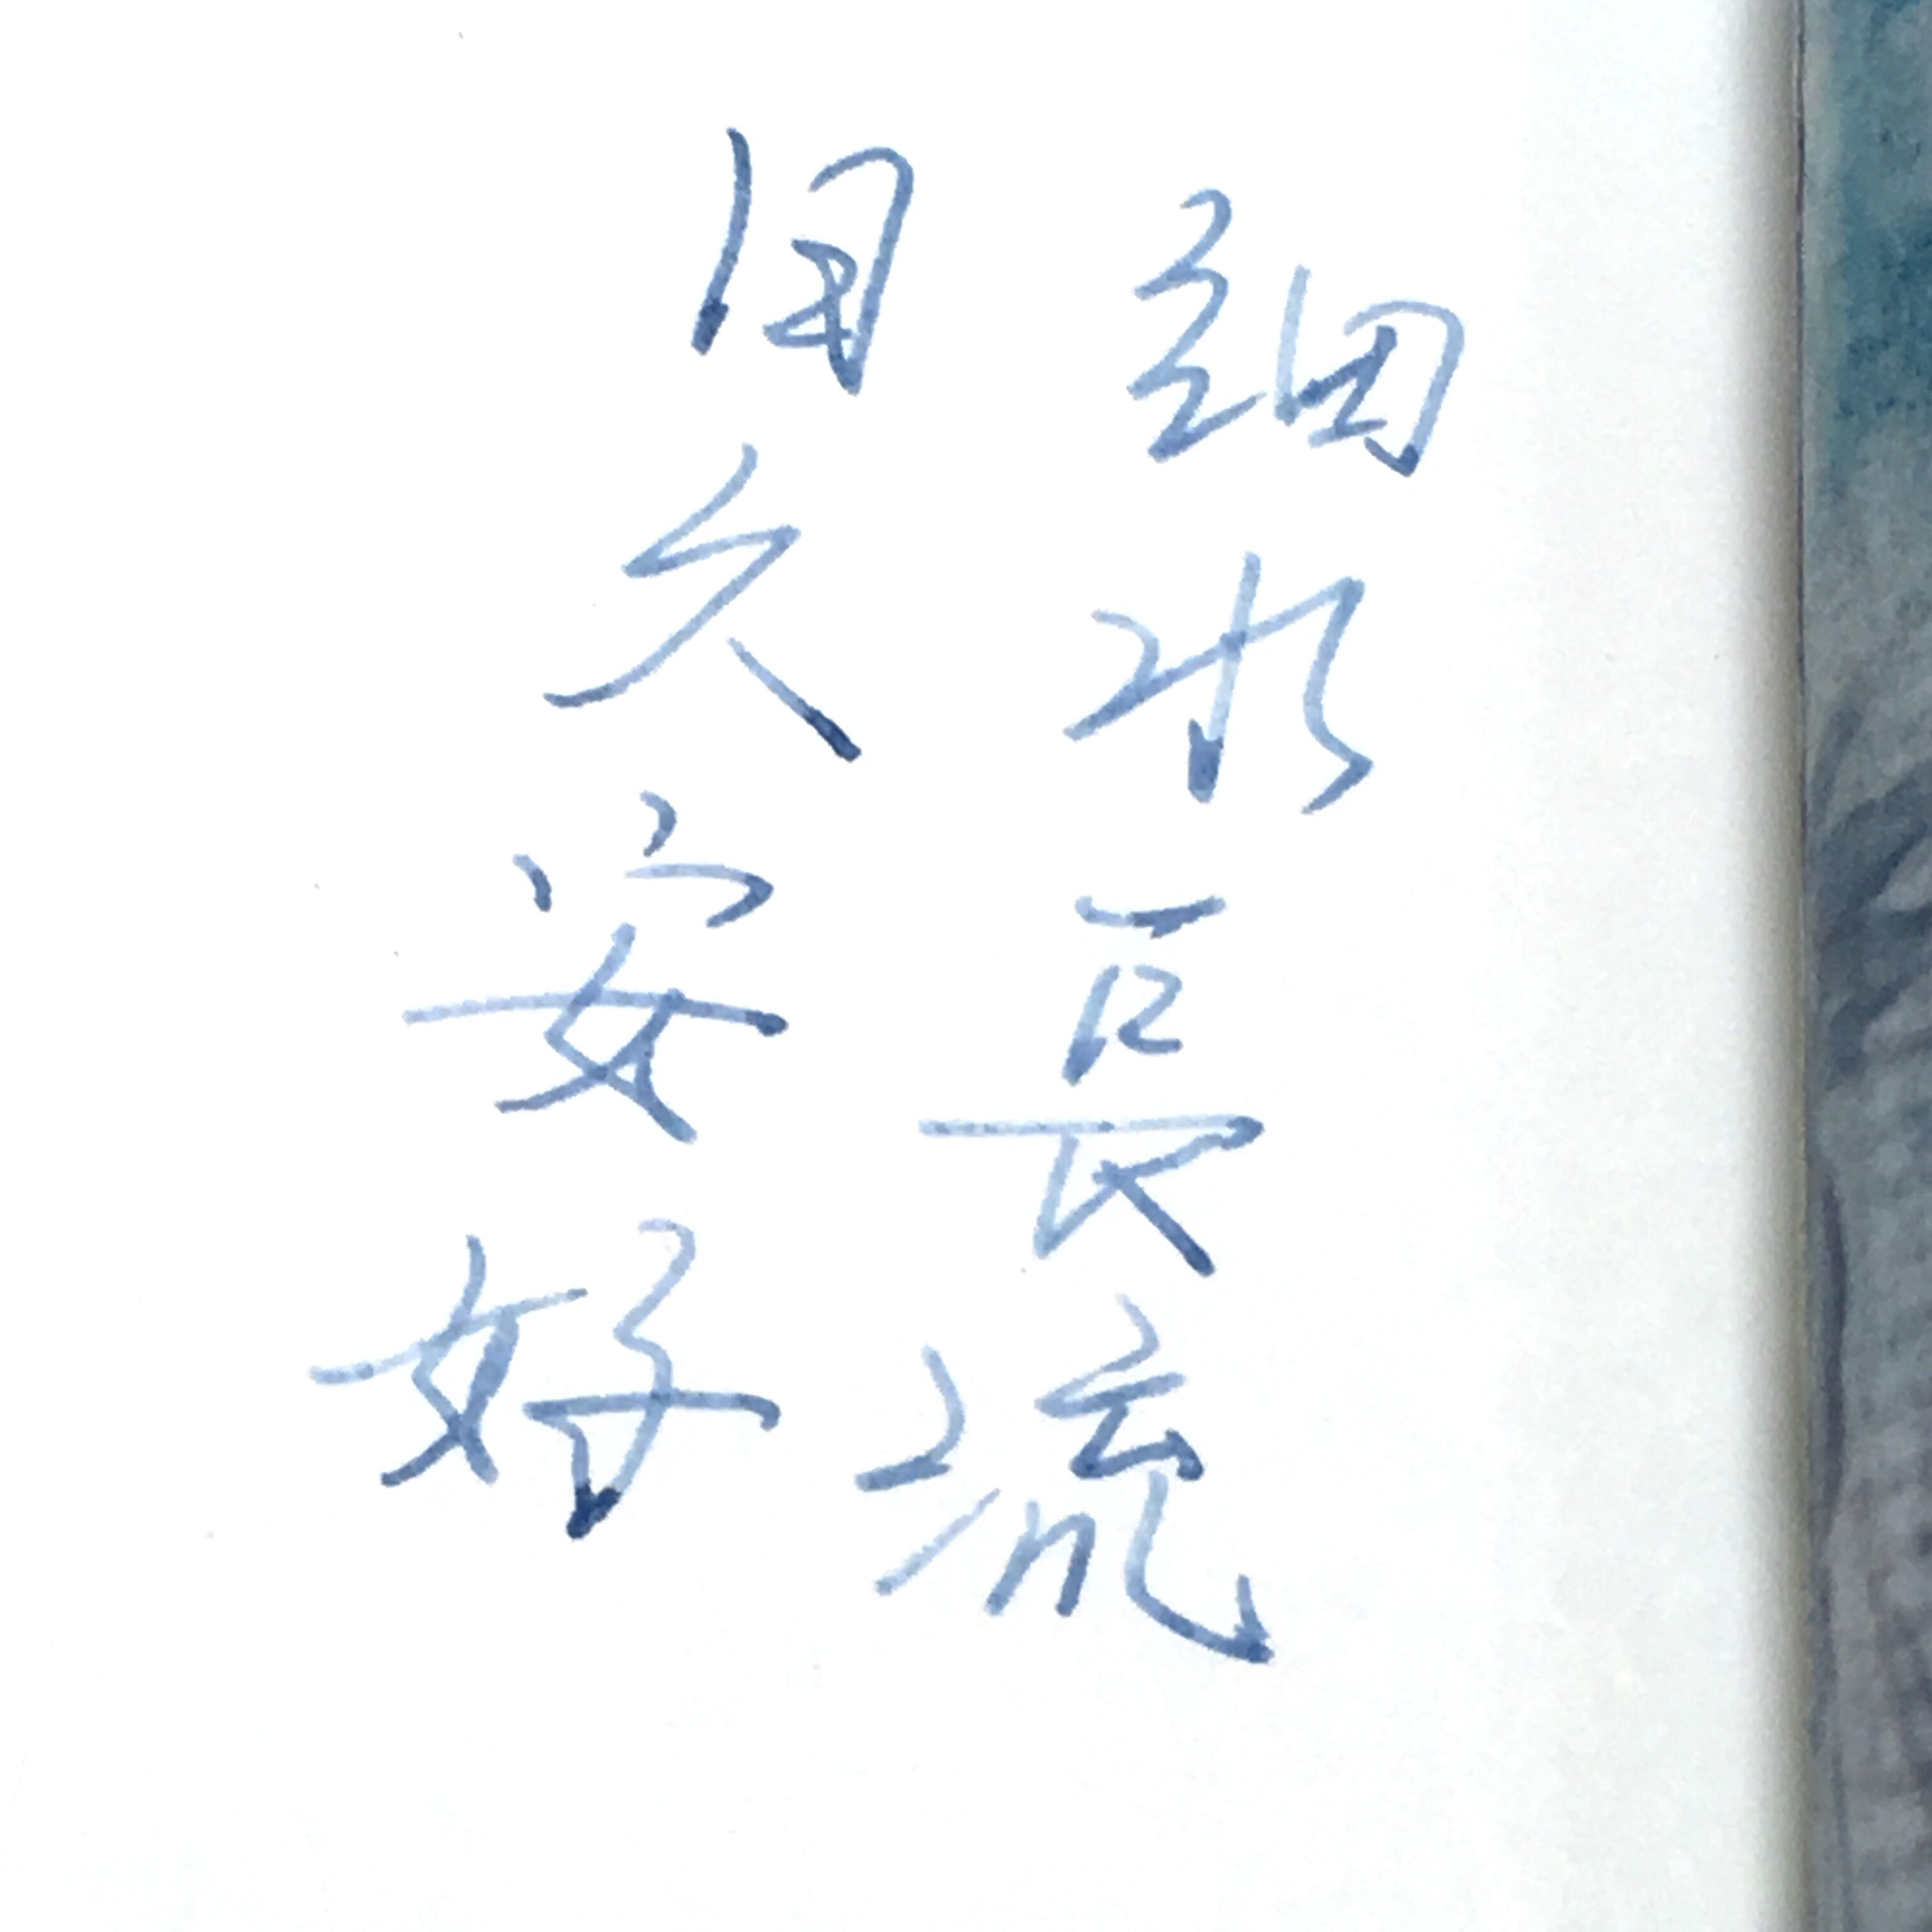 細水長流
日久安好